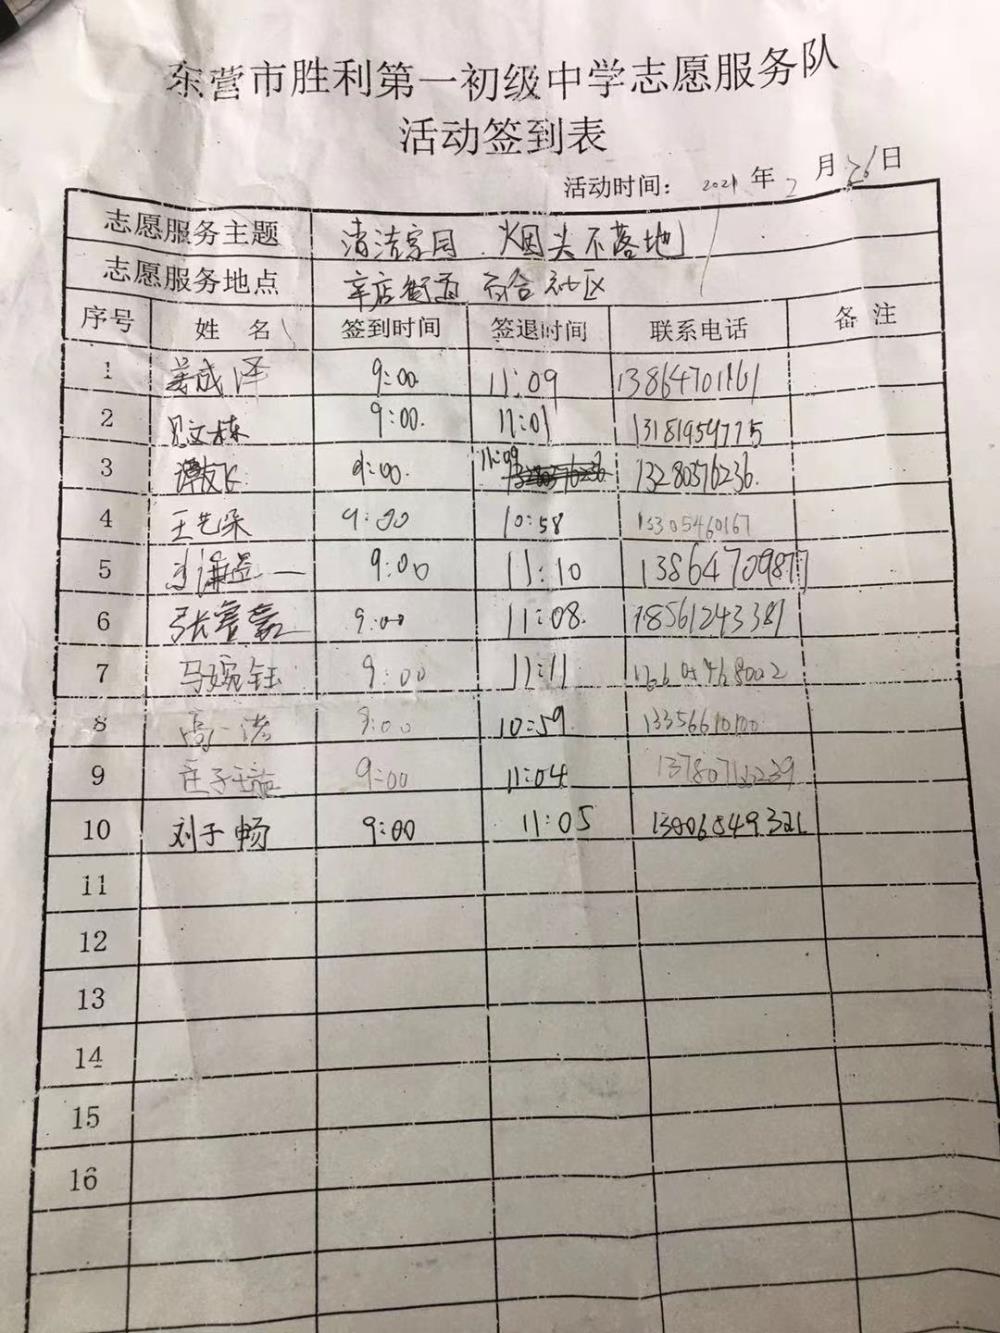 东营市胜利第一初级中学志愿服务队
活动签到表
活动时间： 2021 年 2 月 26 日
志愿服务主题 清洁家园 烟头不落地
志愿服务地点 辛店街道 百合社区
序号 姓 名 签到时间 签退时间 联系电话 备 注
1 姜成泽 9:00 11:09 13864701161
2 见文栋 9:00. 11:01 13181959775
3 谭友飞 9:00. 11:09 13280576236.
4 王艺深 9:00 10:58 13305460167
5 9:00 11:10 13864709877
6 9:00 11:08. 18561243381
7 马婉钰 9:00 11:11
8 高一诺 9:00 10:59. 13356610100
9 庄子 9:00 11:04
10 刘于畅 9:00 11:05 13006849321
11
12
13
14
15
16